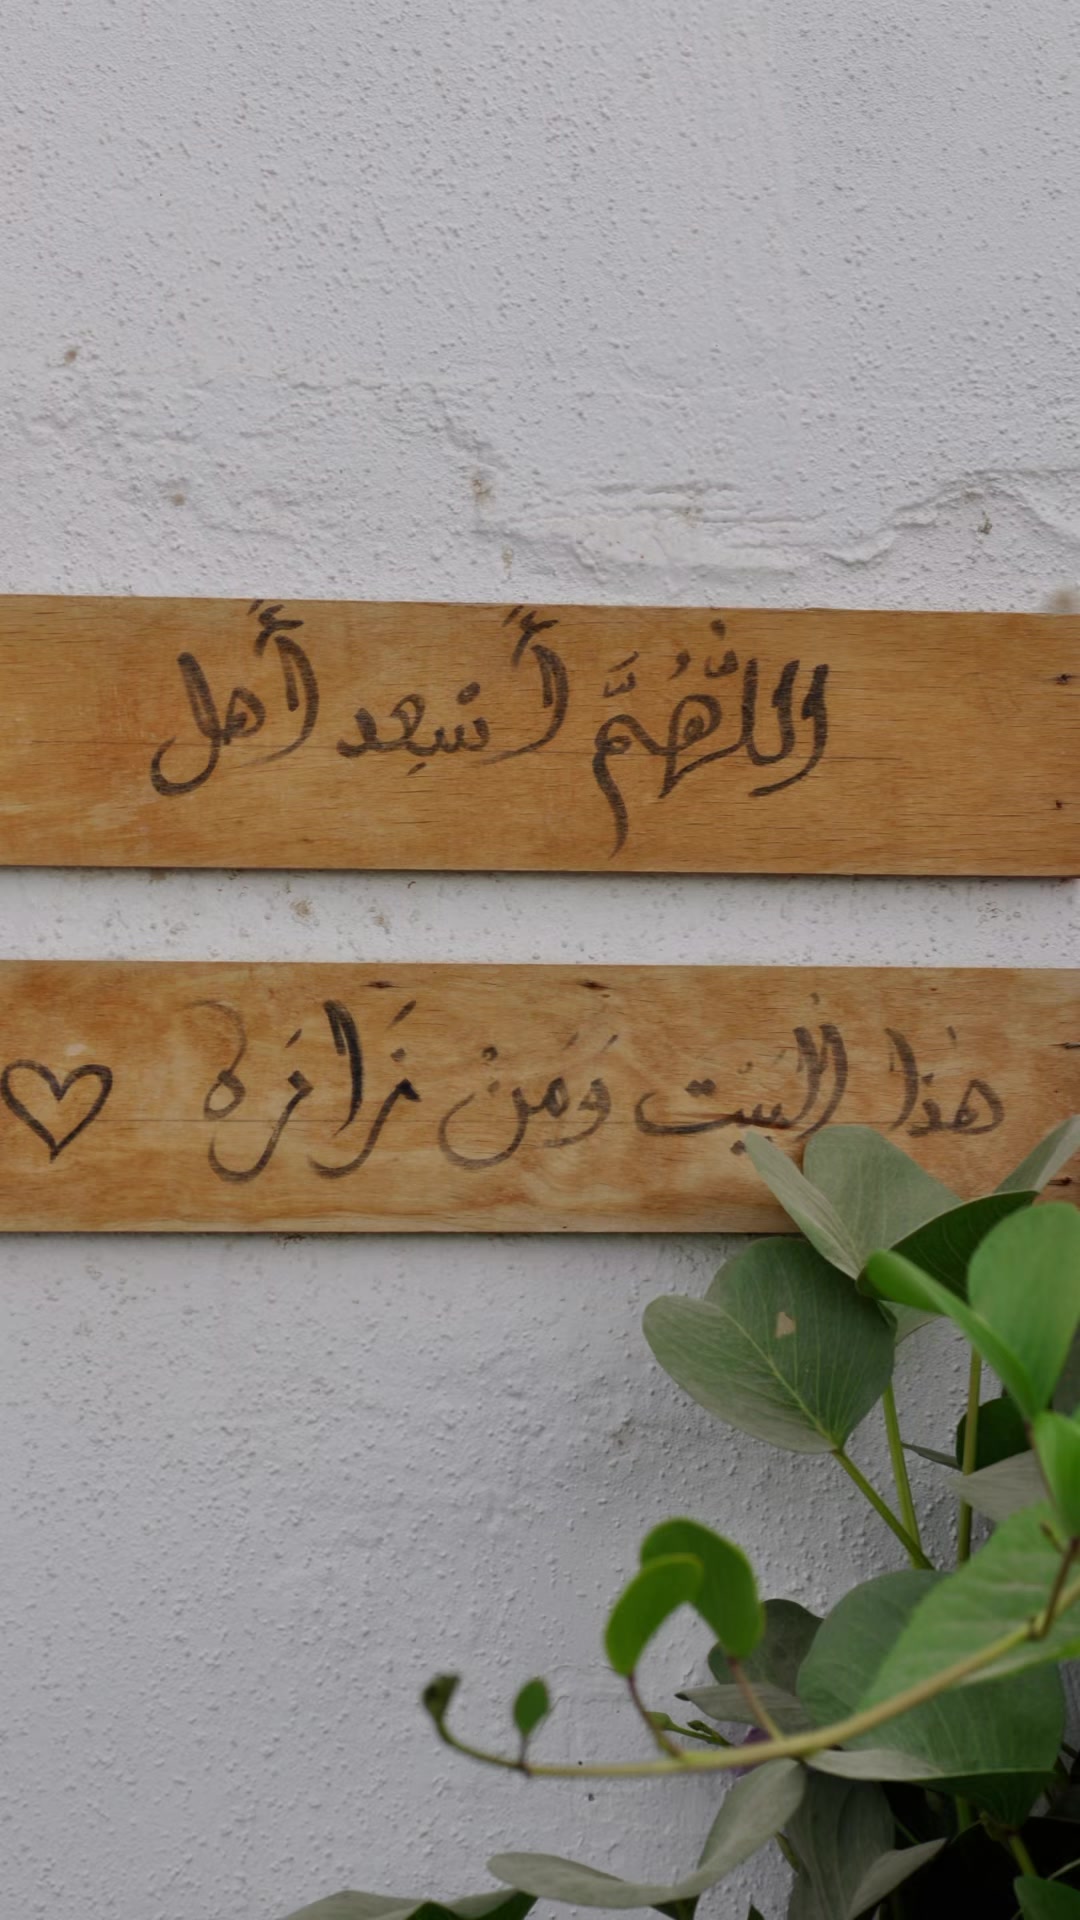 اللَّهُمَّ أَسْعِد أَهل
هذا الْبَيْت وَمَنْ زَارَه